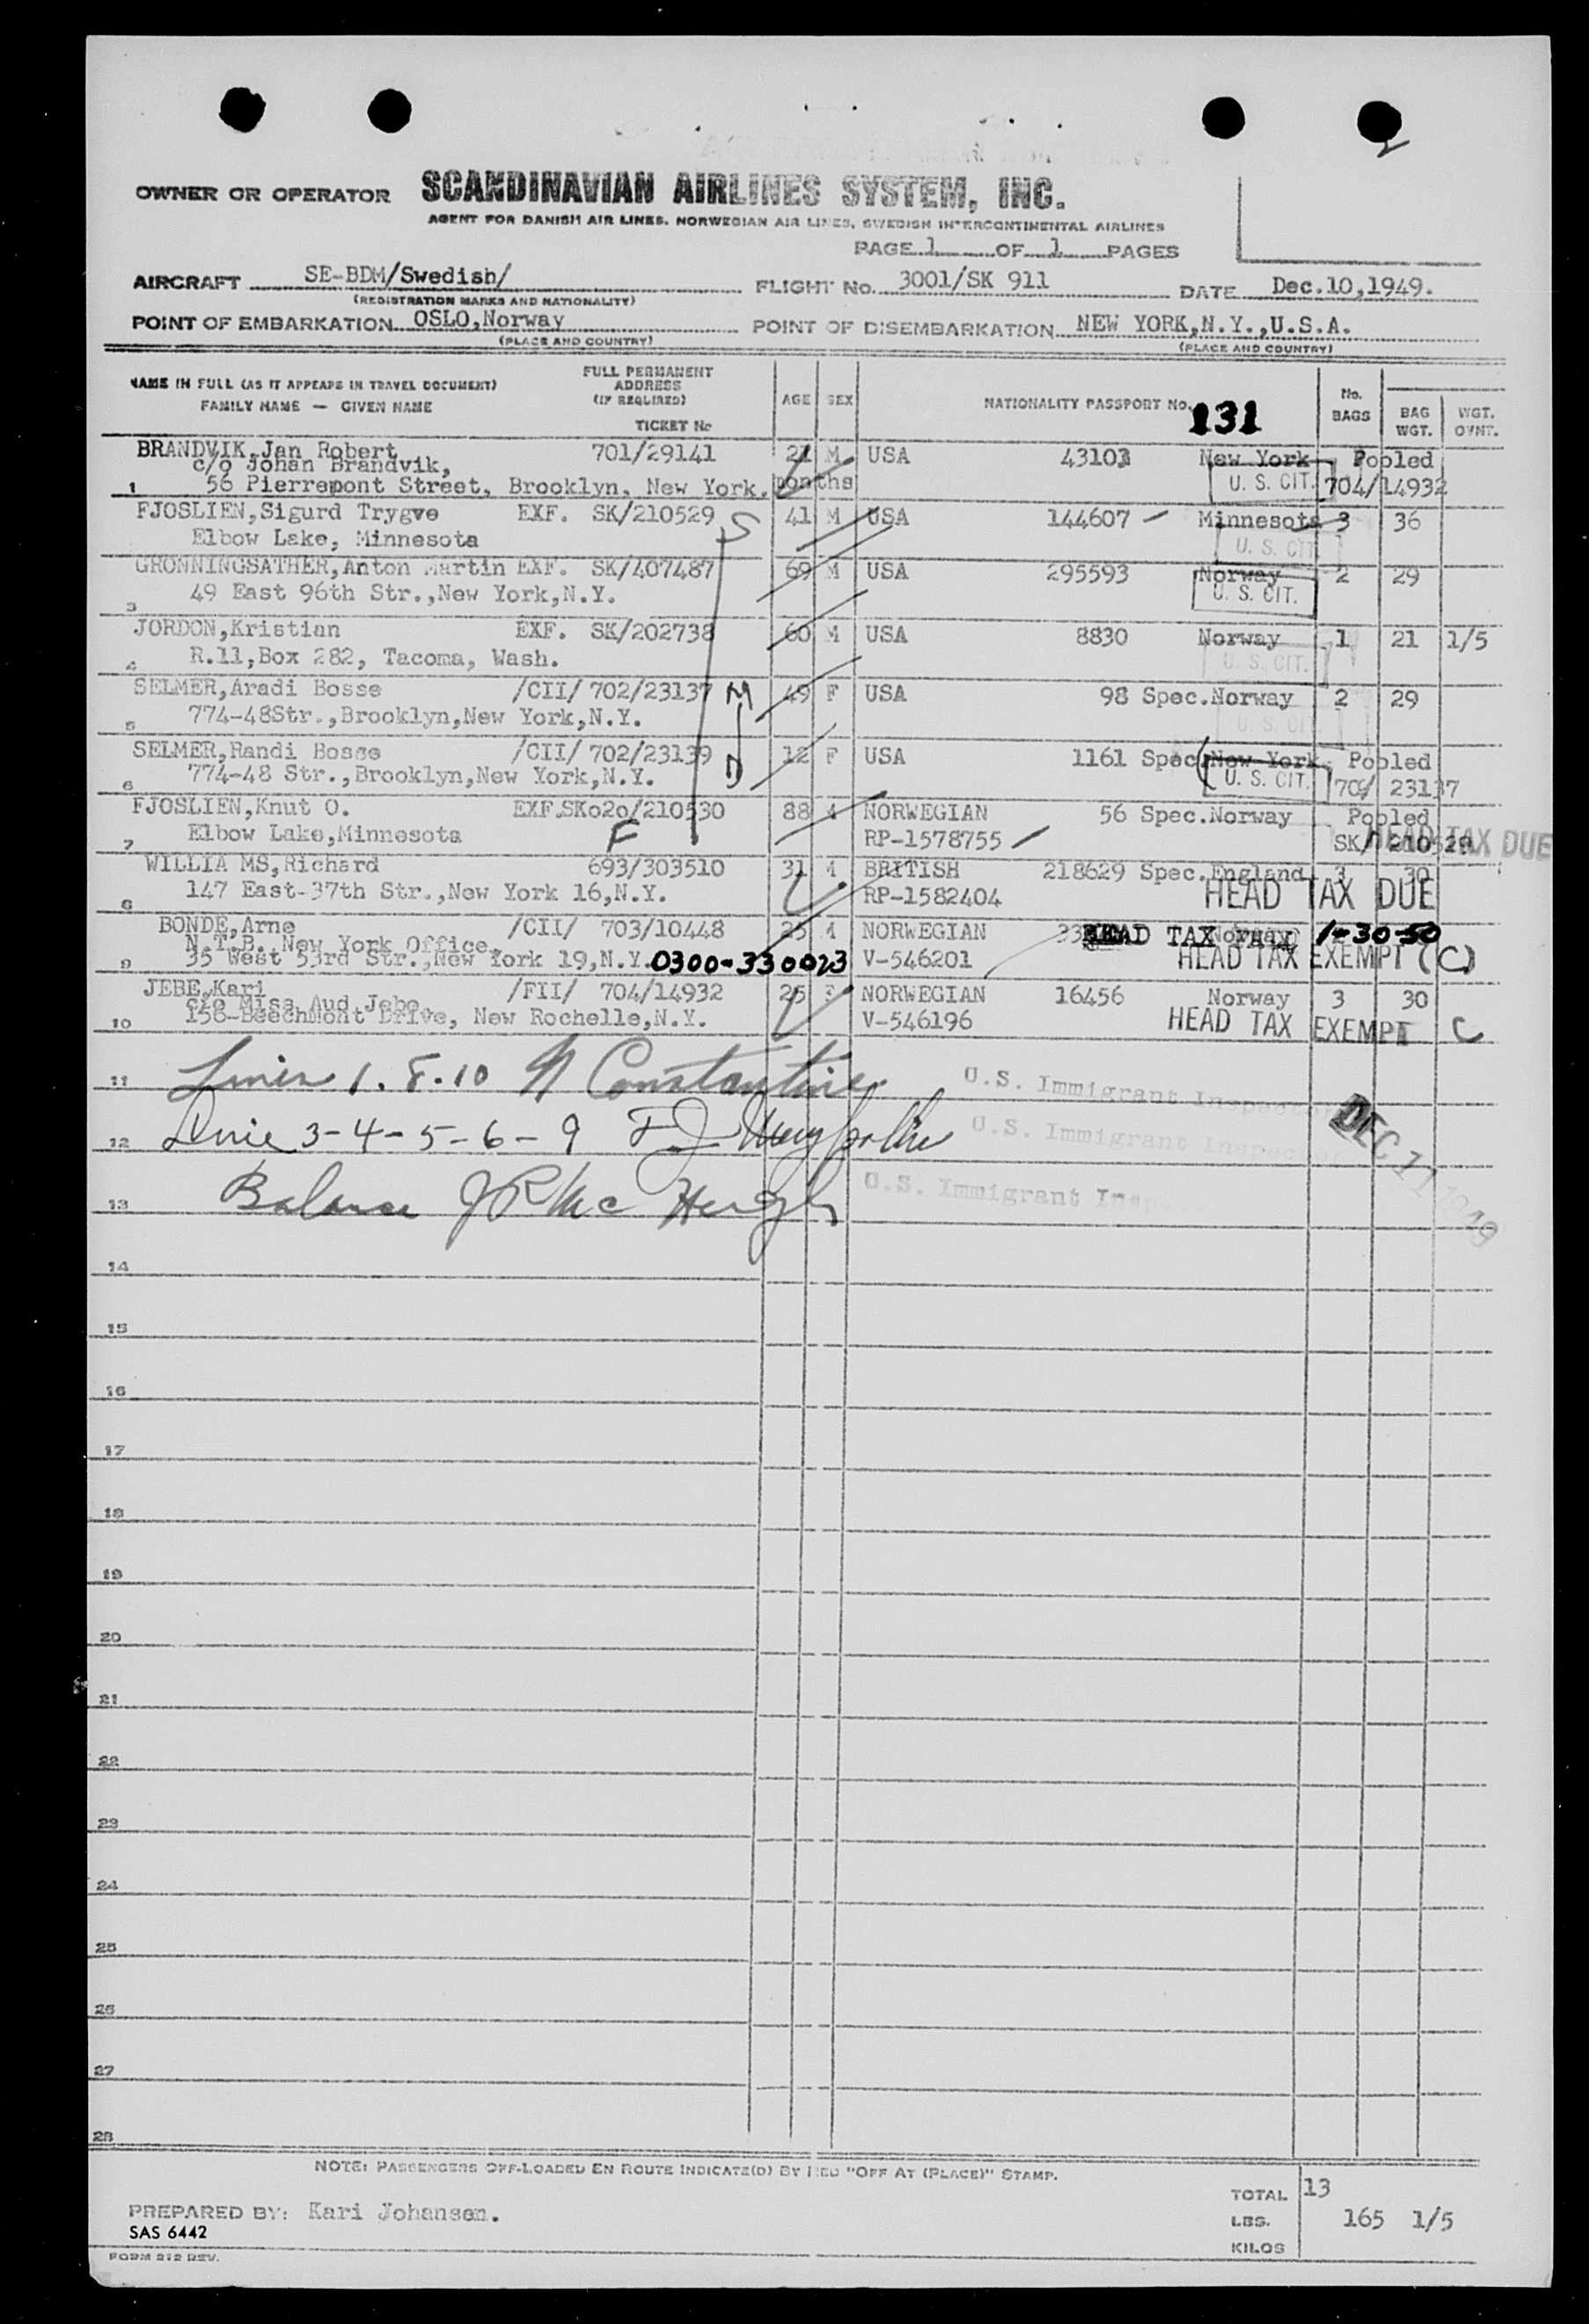 OWNER OR OPERATOR SCANDINAVIAN AIRLINES SYSTEM, INC.
AGENT FOR DANISH AIR LINES, NORWEGIAN AIR LINES, SWEDISH INTERCONTINENTAL AIRLINES
PAGE 1 OF 1 PAGES
AIRCRAFT SE-BDM/Swedish/ FLIGHT No. 3001/SK 911 DATE Dec.10,1949.
(REGISTRATION MARKS AND NATIONALITY)
POINT OF EMBARKATION OSLO,Norway POINT OF DISEMBARKATION NEW YORK,N.Y.,U.S.A.
(PLACE AND COUNTRY) (PLACE AND COUNTRY)
NAME IN FULL (AS IT APPEARS IN TRAVEL DOCUMENT) FULL PERMANENT ADDRESS (IF REQUIRED) AGE SEX NATIONALITY PASSPORT No. 131 No. BAGS BAG WGT. WGT. OVNT.
FAMILY NAME — GIVEN NAME TICKET No
BRANDVIK,Jan Robert 701/29141 21 M USA 43103 New York Pooled
c/o Johan Brandvik,
1 56 Pierrepont Street, Brooklyn, New York. months U. S. CIT. 704/14932
FJOSLIEN,Sigurd Trygve EXF. SK/210529 S 41 M USA 144607 Minnesota 3 36
Elbow Lake, Minnesota U. S. CIT
GRONNINGSATHER,Anton Martin EXF. SK/407487 69 M USA 295593 Norway 2 29
3 49 East 96th Str.,New York,N.Y. U. S. CIT.
JORDON,Kristian EXF. SK/202738 60 M USA 8830 Norway 1 21 1/5
4 R.11,Box 282, Tacoma, Wash. U. S. CIT.
SELMER,Aradi Bosse /CII/ 702/23137 M 49 F USA 98 Spec.Norway 2 29
5 774-48Str.,Brooklyn,New York,N.Y. U. S. CIT
SELMER,Randi Bosse /CII/ 702/23139 D 12 F USA 1161 Spec New York Pooled
6 774-48 Str.,Brooklyn,New York,N.Y. U. S. CIT. 702/ 23137
FJOSLIEN,Knut O. EXF.SKo2o/210530 88 M NORWEGIAN 56 Spec.Norway Pooled
7 Elbow Lake,Minnesota F RP-1578755 SK/ 210529 HEAD TAX DUE
WILLIA MS,Richard 693/303510 31 M BRITISH 218629 Spec.England 3 30
8 147 East-37th Str.,New York 16,N.Y. RP-1582404 HEAD TAX DUE
BONDE,Arne /CII/ 703/10448 25 M NORWEGIAN 33 HEAD TAX PAID Norway 1-30-50
N.T.B. New York Office,
9 35 West 53rd Str.,New York 19,N.Y. 0300-330023 V-546201 HEAD TAX EXEMPT (C)
JEBE,Kari /FII/ 704/14932 25 F NORWEGIAN 16456 Norway 3 30
c/o Miss Aud Jebe
10 156-Beechmont Drive, New Rochelle,N.Y. V-546196 HEAD TAX EXEMPT C
11 Lines 1. 8. 10 Constantine U.S. Immigrant Inspector
12 Line 3-4-5-6-9 U.S. Immigrant Inspector DEC 11 1949
13 Balance J R Mc Hugh U.S. Immigrant Insp
14
15
16
17
18
19
20
21
22
23
24
25
26
27
28
NOTE: PASSENGERS OFF-LOADED EN ROUTE INDICATE(D) BY RED "OFF AT (PLACE)" STAMP.
TOTAL 13
PREPARED BY: Kari Johansen. LBS. 165 1/5
SAS 6442
KILOS
FORM 212 REV.